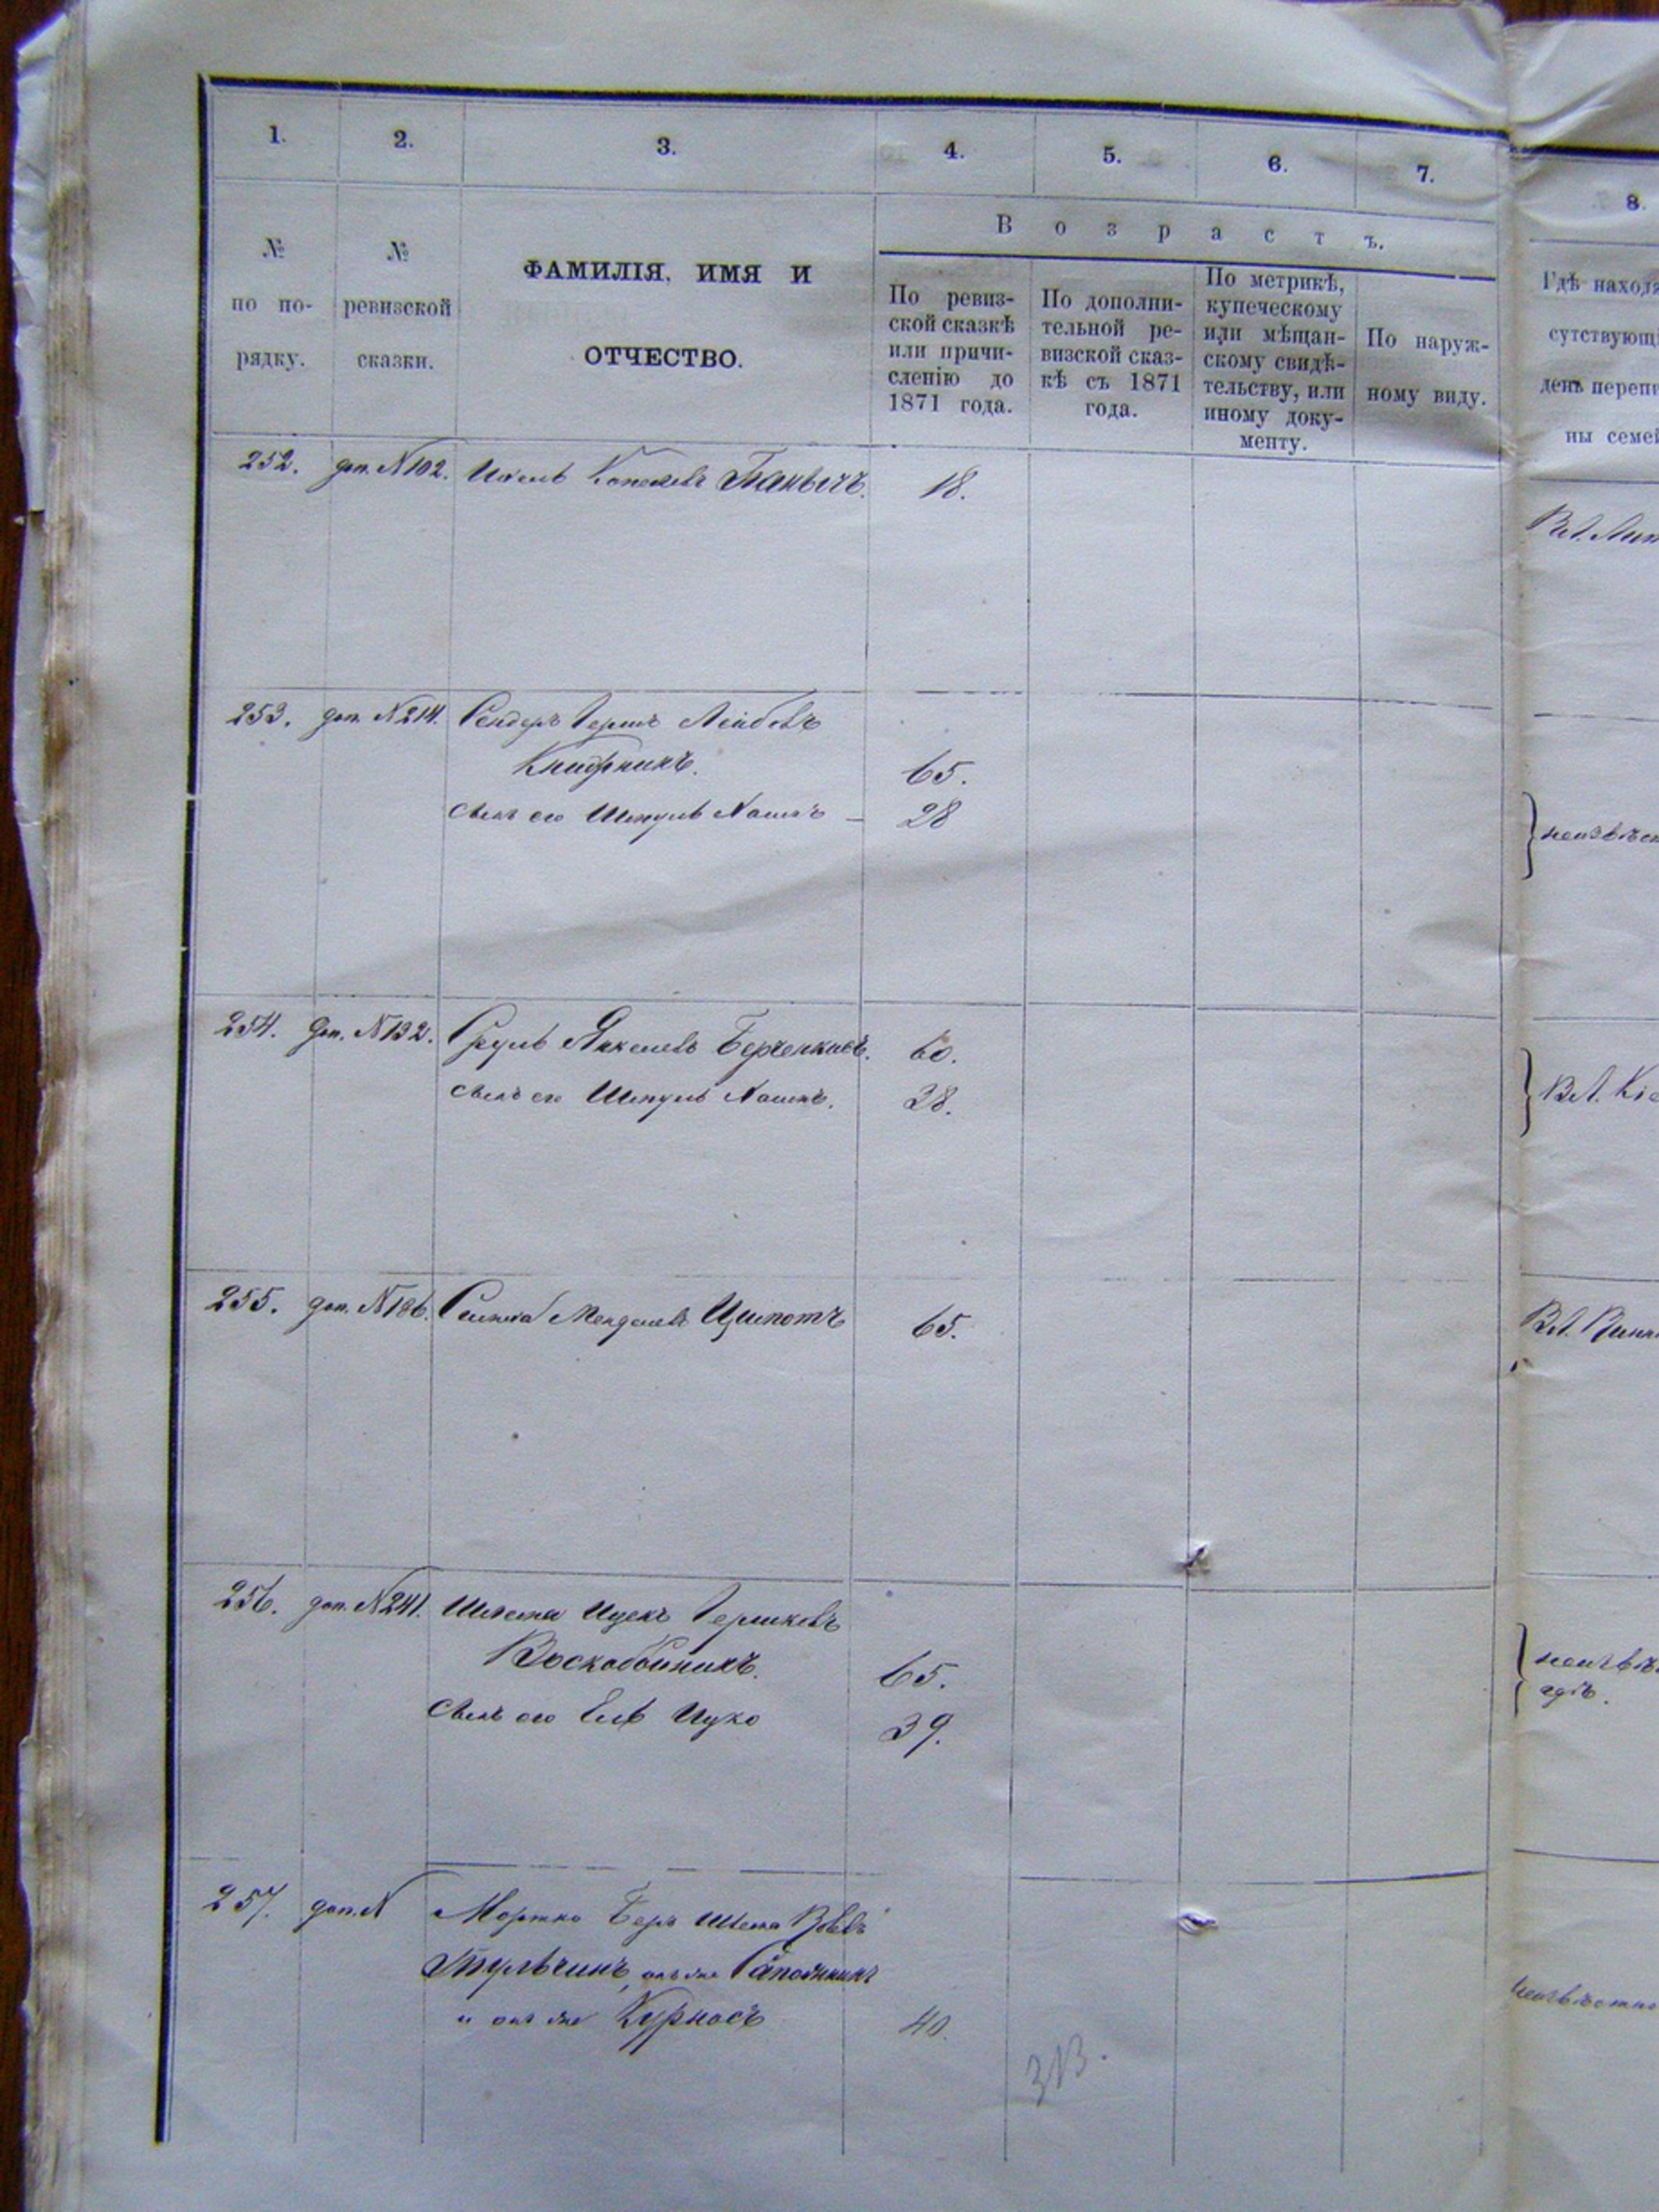 1. 2. 3. 4. 5. 6. 7. 8.
№ по по-рядку.
№ ревизской сказки.
ФАМИЛІЯ, ИМЯ И
ОТЧЕСТВО.
Возрастъ.
По ревиз-
ской сказкѣ
или причи-
сленію до
1871 года.
По дополни-
тельной ре-
визской сказ-
кѣ съ 1871
года.
По метрикѣ,
купеческому
или мѣщан-
скому свидѣ-
тельству, или
иному доку-
менту.
По наруж-
ному виду.
Гдѣ находя
сутствующі
день перепи
ны семей
252. доп. N102. 18.
253. доп. N214. Сендеръ Гершъ Лейбовъ
65.
сынъ его Шмуль 28
неизвѣст
254. доп. N132. Сруль Янкелевъ 60.
сынъ его Шмуль 38.
В.А. Кіе
255. доп. N186. Симха Менделевъ Ципотъ 65.
256. доп. N241. Шлема Ицекъ Гершковъ
Воскобойникъ. 65.
сынъ его Ель Ицко 39.
гдѣ.
257. доп. N Мортко Беръ Шлема
Тульчинъ, онъ же Сапожникъ
и онъ же Курносъ 40.
неизвѣстно
313.